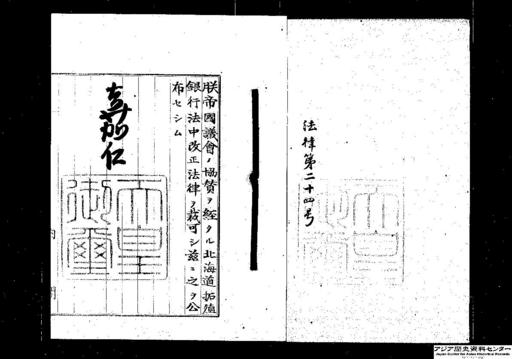 法律第二十四号
朕帝國議會ノ協賛ヲ經タル北海道拓殖
銀行法中改正法律ヲ裁可シ茲ニ之ヲ公
布セシム
嘉仁
天皇
御璽
アジア歴史資料センター
Japan Center for Asian Historical Records